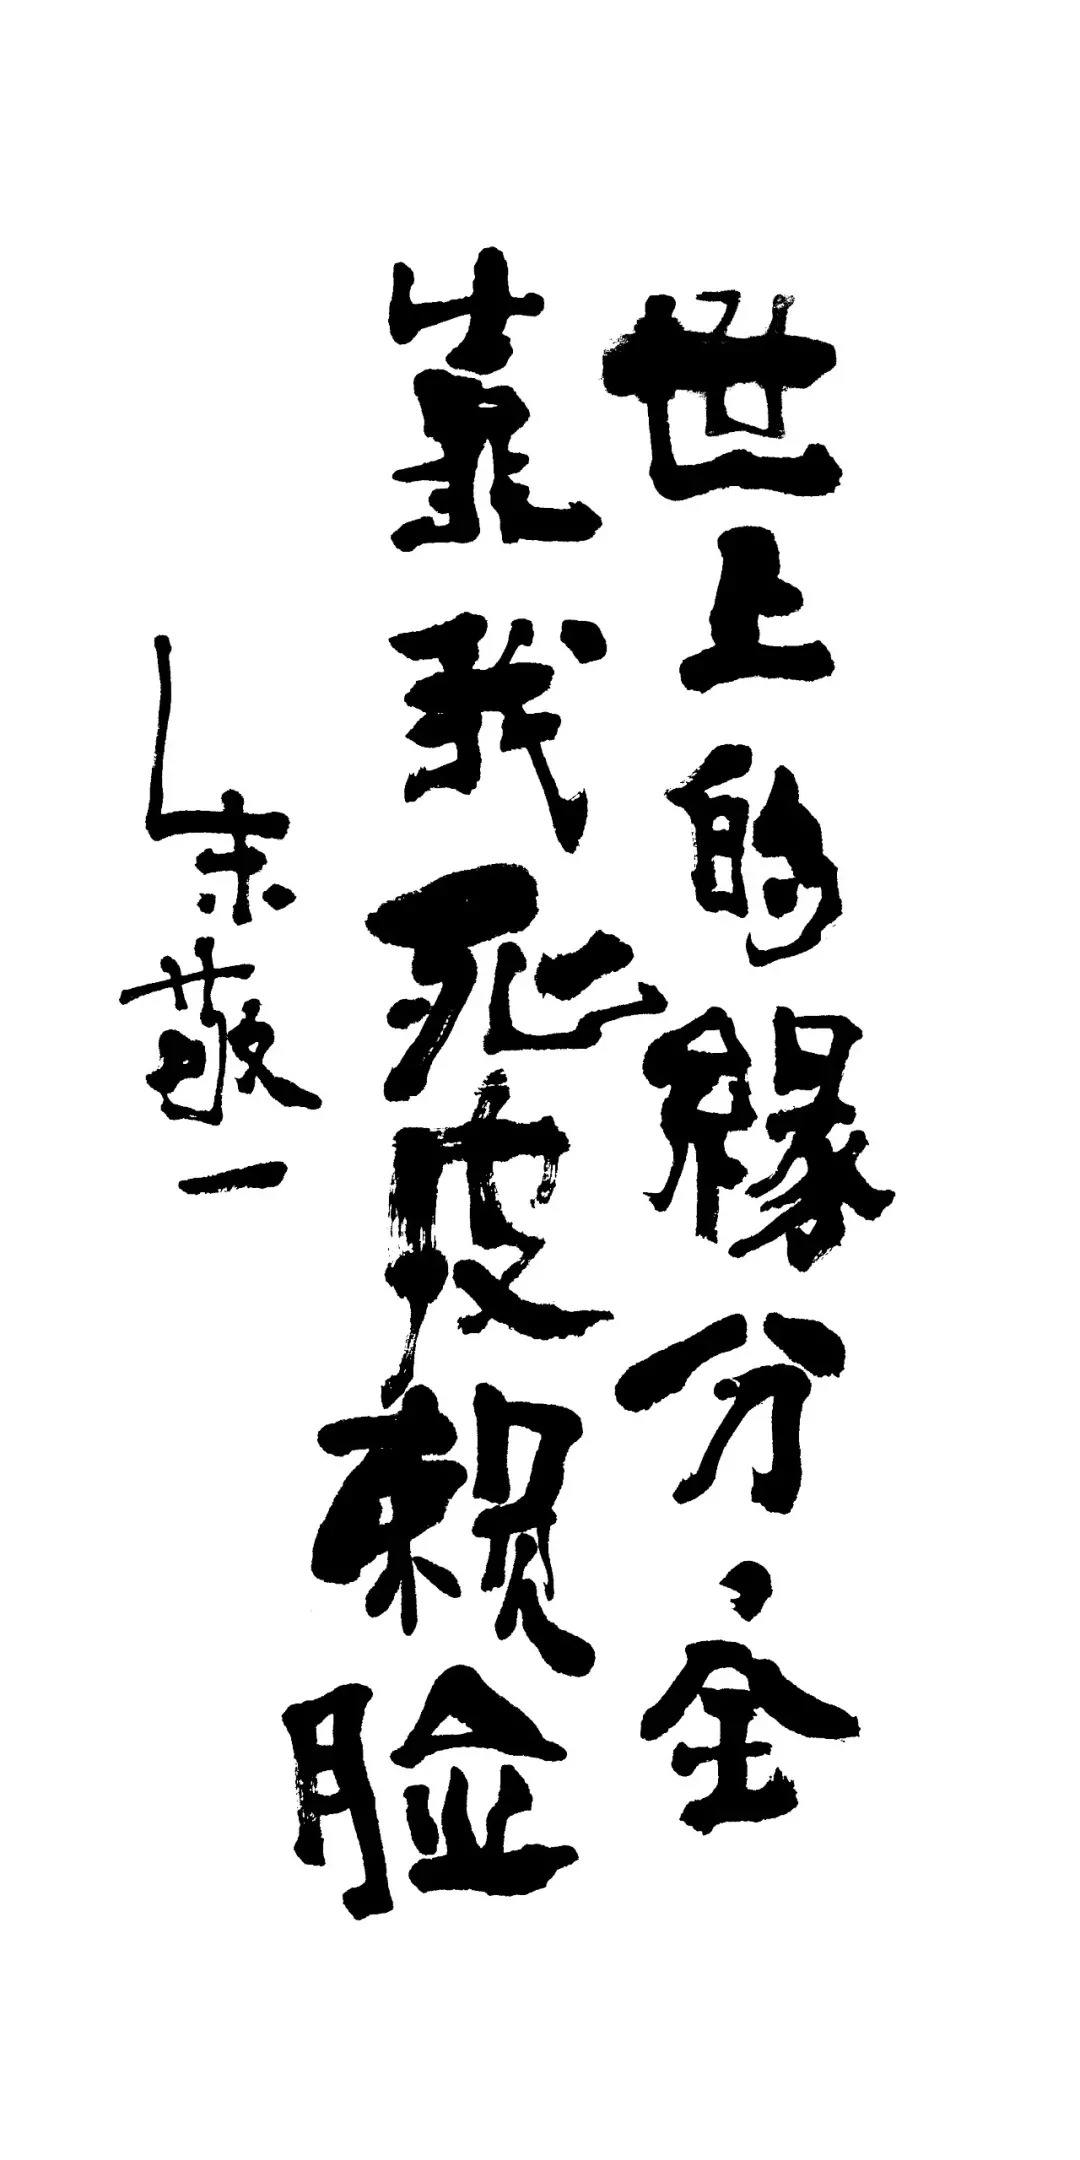 世上的緣分、全
靠我死皮赖脸
朱敬一